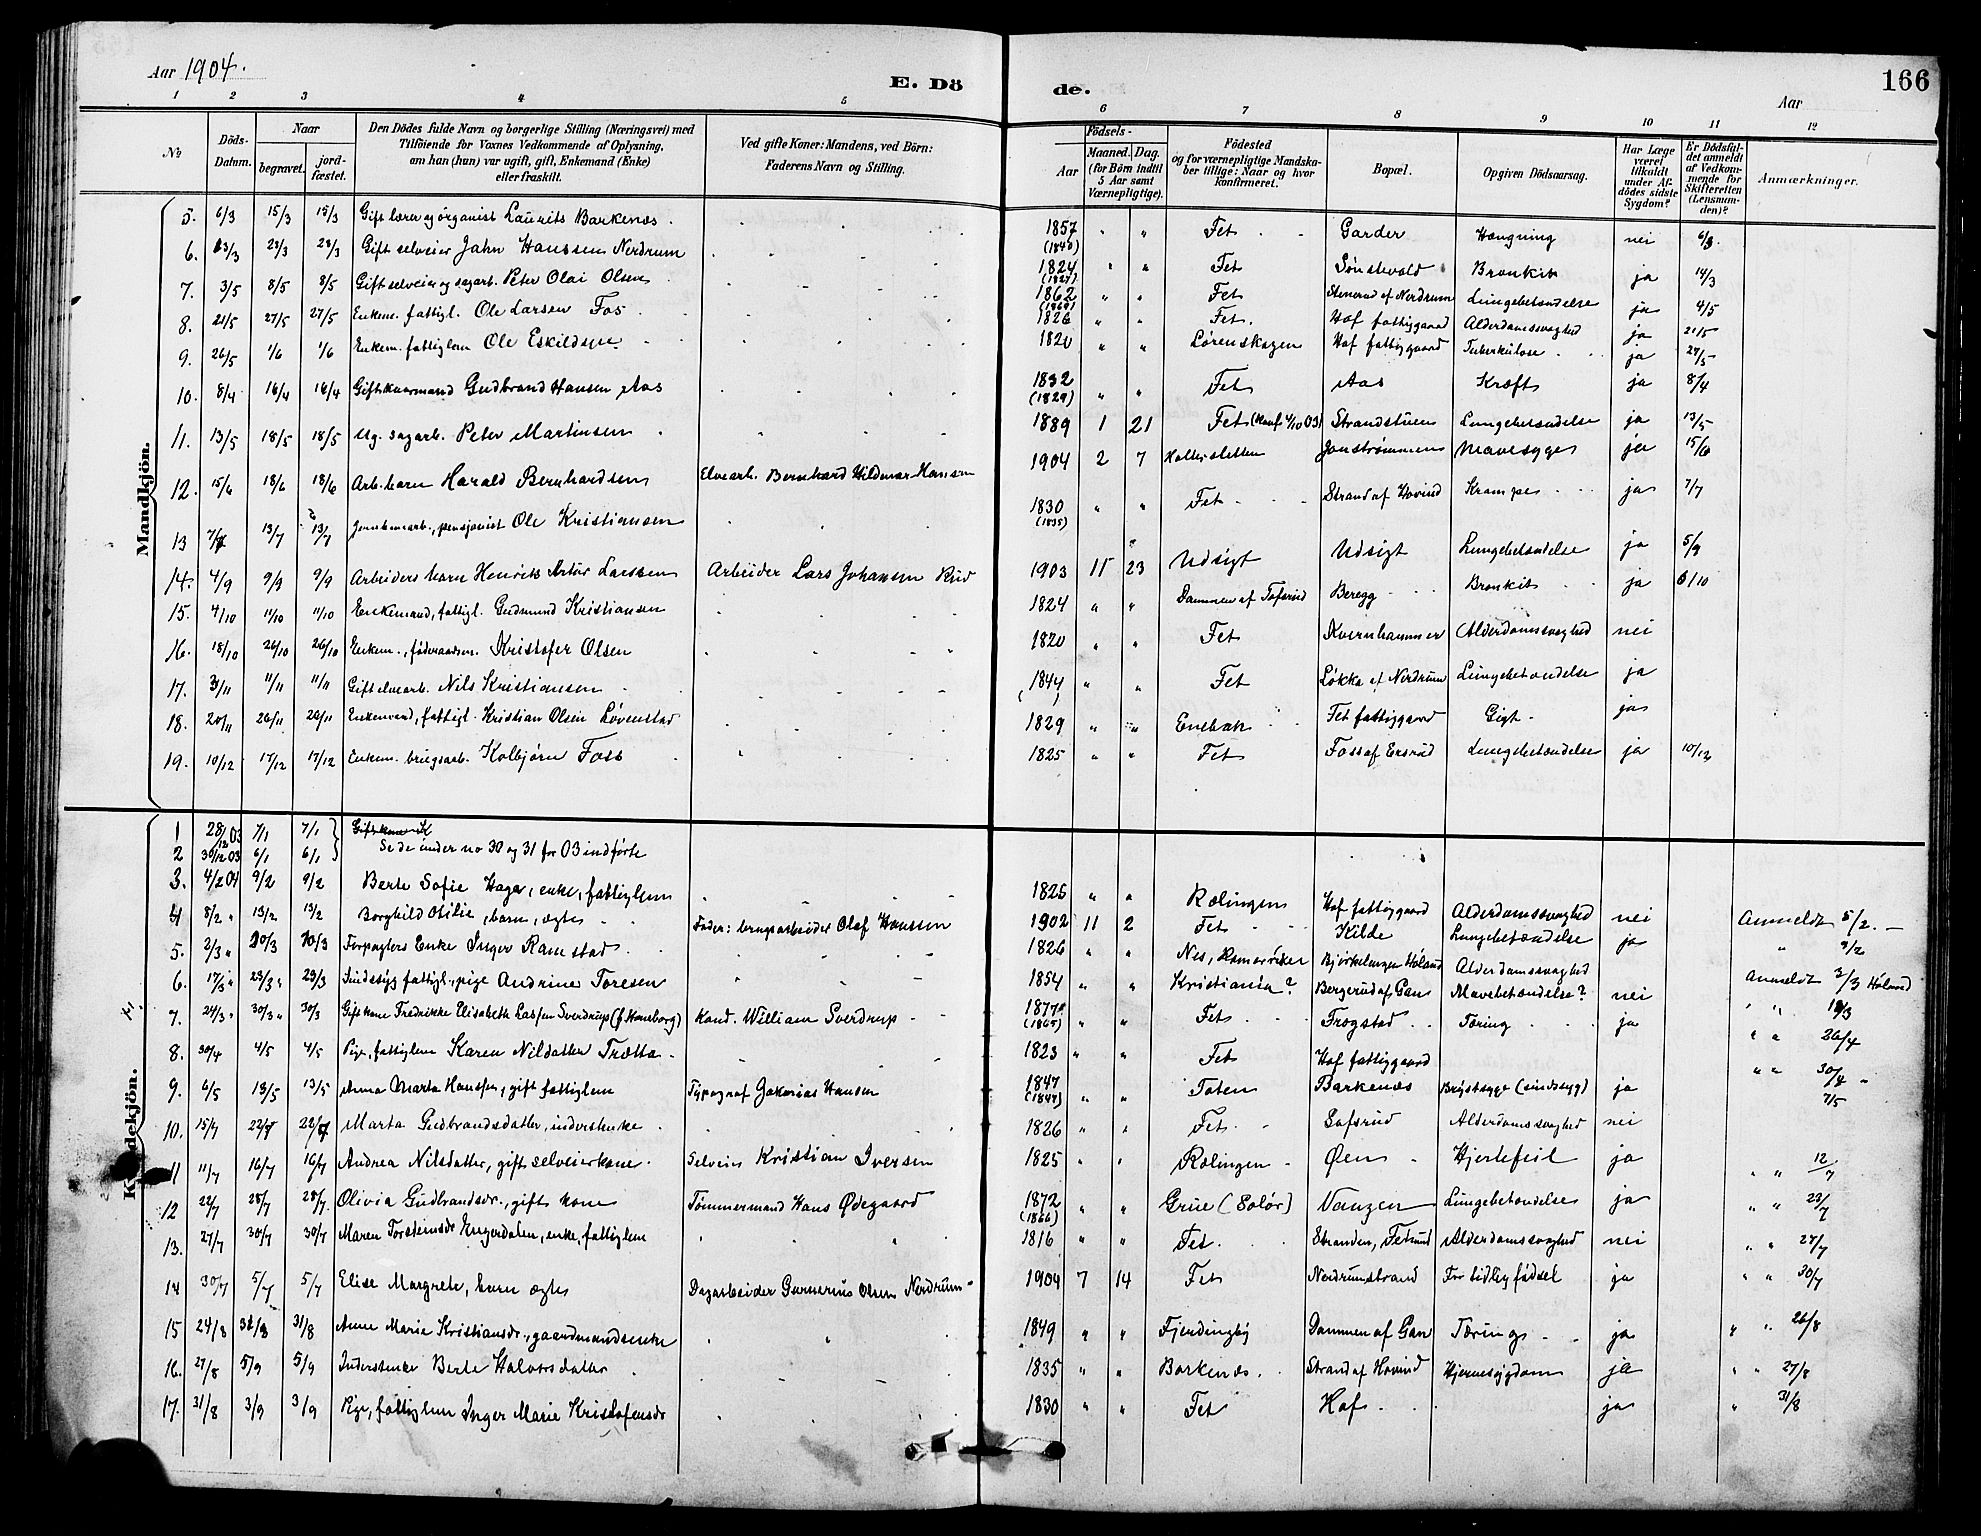 Aar 1904.
E. Dö
de.
166
Aar
1 2 3 4 5 6 7 8 9 10 11 12
No
Döds-Datum.
Naar
begravet.
jord-fæstet.
Den Dödes fulde Navn og borgerlige Stilling (Næringsvei) med Tilföiende for Voxnes Vedkommende af Oplysning, om han (hun) var ugift, gift, Enkemand (Enke) eller fraskilt.
Ved gifte Koner: Mandens, ved Börn: Faderens Navn og Stilling.
Födsels-
Aar
Maaned. Dag.
(for Börn indtil 5 Aar samt Værnepligtige).
Födested og for værnepligtige Mandskaber tillige: Naar og hvor konfirmeret.
Bopæl.
Opgiven Dödsaarsag.
Har Læge været tilkaldt under Afdödes sidste Sygdom?
Er Dödsfaldet anmeldt af Vedkommende for Skifteretten (Lensmanden)?
Anmærkninger.
Mandkjön.
5. 6/3 15/3 15/3 Gift lærer og organist Laurits Barkenæs. 1857 Fet Garder Hængning nei 6/3.
6. 13/3 23/3 23/3 Gift selveier Jahn Hanssen Nerdrum (1840) 1824 Fet Sønstevold Bronkit ja 14/3
7. 3/5 8/5 8/5 Gift selveier og sagarb. Peter Olai Olsen (1824) 1862 Fet Stenerud af Nerdrum Lungebetændelse ja 4/5
8. 21/5 27/5 27/5 Enkem. fattigl. Ole Larsen Fos 1826 Fet. Hof fattiggaard Alderdomssvaghed ja 21/5
9. 26/5 1/6 1/6 Enkem. fattiglem Ole Eskildsen 1820 Lørenskogen Hof fattiggaard Tuberkulose ja 27/5
10. 8/4 16/4 16/4 Gift kaarmand Gudbrand Hansen Aas 1832 (1829) Fet Aas Kræft ja 8/4
11. 13/5 18/5 18/5 Ug. sagarb. Peter Martinsen 1889 1 21 Fet (Konf 4/10 03) Strandstuen Lungebetændelse ja 13/5
12. 15/6 18/6 18/6 Arb. barn Harald Bernhardsen Elvearb. Bernhard Hildmar Hansen 1904 2 7 Holtersletten Jonstrømmen Mavesyge ja 15/6
13 7/7 13/7 13/7 Jernbanearb., pensjonist Ole Kristiansen 1830 (1835) Fet Strand af Hovind Krampe ja 7/7
14. 4/9 9/9 9/9 Arbeiders barn Henrik Artur Larssen Arbeider Lars Johansen Rud 1903 11 23 Udsigt Udsigt Lungebetændelse ja 5/9
15. 4/10 11/10 11/10 Enkemand, fattigl. Gudmund Kristiansen 1824 Dammen af Tofsrud Beregg Bronkit ja 6/10
16. 18/10 26/10 26/10 Enkem., føderaadsm. Kristofer Olsen 1820 Fet Kvernhammer Alderdomssvaghed nei
17. 3/11 11/11 11/11 Gift elvearb. Nils Kristiansen 1844 Fet Løkka af Nerdrum Lungebetændelse ja
18. 20/11 26/11 26/11 Enkemand, fattigl. Kristian Olsen Løvenstad 1829 Enebak Fet fattiggaard Gigt ja
19. 10/12 17/12 17/12 Enkem. brugsarb. Kolbjørn Foss 1825 Fet Foss af Ersrud Lungebetændelse ja 10/12
Kvindekjön.
1 28/12 03 7/1 7/1 Gift kone K
2 30/12 03 6/1 6/1 Se de under no 30 og 31 for 03 indførte
3. 4/2 04 9/2 9/2 Berte Sofie Hager, enke, fattiglem 1825 Rælingen Hof fattiggaard Alderdomssvaghed nei Anmeldt 5/2.
4 8/2 13/2 13/2 Borghild Otilie, barn, ægte Fader: brugsarbeider Olaf Hanssen 1902 11 2 Fet Kilde Lungebetændelse ja " 9/2
5. 2/3 10/3 10/3 Forpagters Enke Inger Ramstad 1826 Nes, Romerriket Bjørkelangen Høland Alderdomssvaghed Anmeldt 3/3 Høland
6. 17/3 23/3 23/3 Sindssyg fattigl., pige Andrine Toresen 1854 Kristiania? Bergerud af Gan Mavebetændelse? nei " " 18/3
7. 24/3 30/3 30/3 Gift kone Fredrikke Elisabeth Lassen Sverdrup (f. Konsborg) Kand. William Sverdrup 1877 (1865) Fet Frogstad Tæring ja " " 26/4
8. 30/4 4/5 4/5 Pige, fattiglem Karen Nilsdatter Trætta 1823 Fet Hof fattiggaard " " 30/4
9. 6/5 13/5 13/5 Anna Marta Hanssen, gift fattiglem Typograf Zakarias Hansen 1847 (1847) Toten Barkenæs Brystsyge (sindssyg) ja 7/5
10. 15/7 22/7 22/7 Marta Gudbrandsdatter, inderstenke 1826 Fet Sofsrud Alderdomssvaghed nei
11 11/7 16/7 16/7 Andrea Nilsdatter, gift selveierkone Selveier Kristian Iversen 1825 Rælingen Øen Hjertefeil ja " " 12/7
12 22/7 28/7 28/7 Olivia Gudbrandsdr., gift kone Tømmermand Hans Ødegaard 1872 (1866) Grue (Solør) Vangen Lungebetændelse ja " " 23/7
13. 27/7 30/7 30/7 Maren Torsteinsdr Ungerdalen, enke, fattiglem 1816 Fet. Stranden, Fetsund Alderdomssvaghed nei " " 27/7
14 30/7 5/7 5/7 Elise Margrete, barn ægte Dagarbeider Gunnerius Olsen Nordrum 1904 7 14 Fet Nerdrumstrand For tidlig fødsel ja " " 30/7
15 24/8 31/8 31/8 Anne Marie Kristiansdr., gaardmandsenke 1849 Fjerdingby Dammen af Gan Tæring ja " " 26/8
16. 27/8 5/9 5/9 Inderstenke Berte Halvorsdatter 1835 Barkenæs Strand af Hovind Hjernesygdom ja " " 27/8
17. 31/8 3/9 3/9 Pige, fattiglem Inger Marie Kristofersdr 1830 Fet Hof ja " 31/8